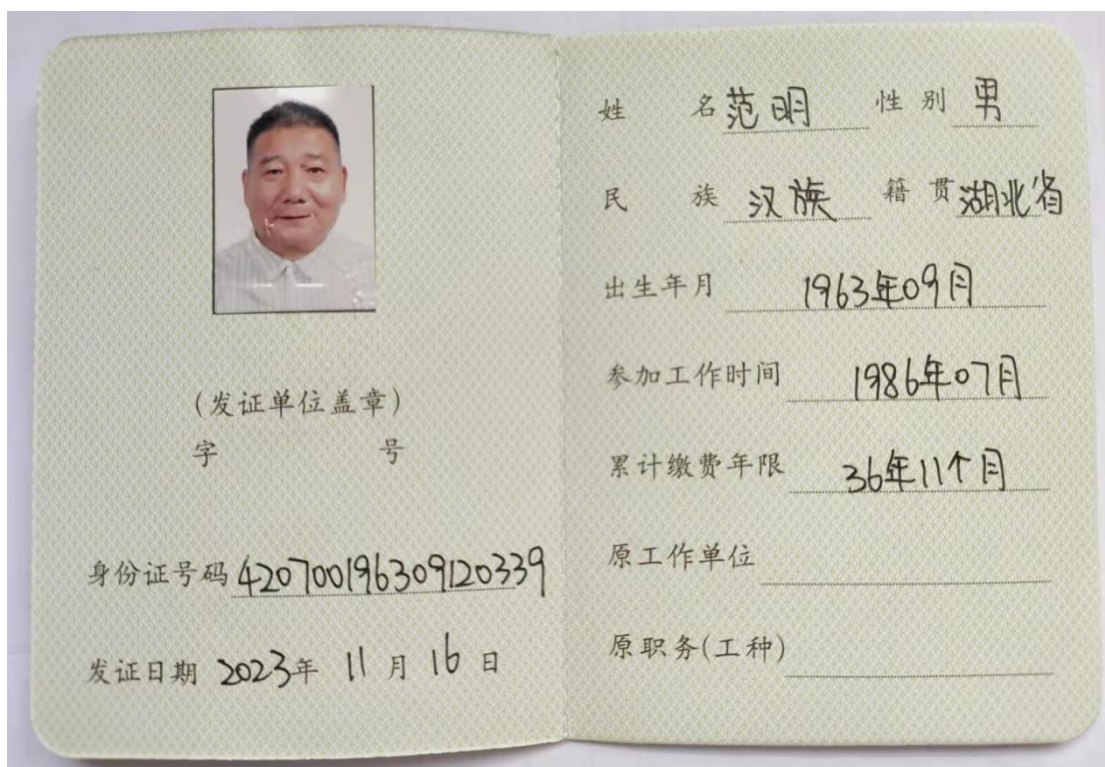 (发证单位盖章)
字 号
身份证号码 420700196309120339
发证日期 2023年 11 月 16 日
姓 名 范明 性 别 男
民 族 汉族 籍 贯 湖北省
出生年月 1963年09月
参加工作时间 1986年07月
累计缴费年限 36年11个月
原工作单位
原职务(工种)